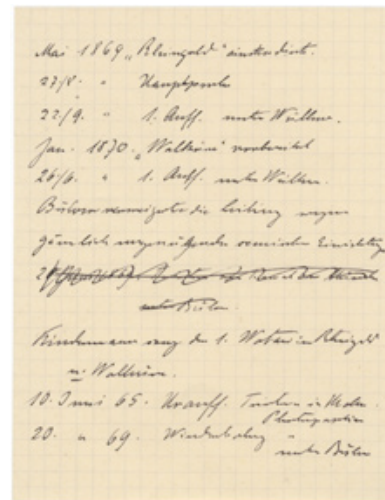 Mai 1869 „Rheingold" einstudiert.
27/8. " Hauptprobe
22/9. " 1. Auff. unter Wüllner.
Jan. 1870. „Walküre" vorbereitet
26/6. " 1. Auff. unter Wüllner.
Bülow verweigerte die Leitung wegen
gänzlich ungenügender scenischer Einrichtung
unter Bülow.
Kindermann sang den 1. Wotan in Rheingold
u. Walküre.
10. Juni 65. Urauff. Tristan in
20. " 69. Wiederholung "
unter Bülow